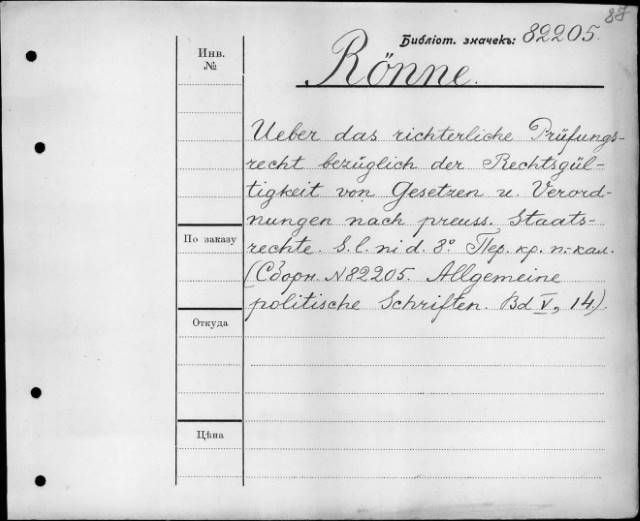 87
Библіот. значекъ: 82205.
Инв.
№
Rönne.
Ueber das richterliche Prüfungs-
recht bezüglich der Rechtsgül-
tigkeit von Gesetzen u. Verord-
nungen nach preuss. Staats-
rechte. S. l. ni d. 8° Пер. кр. п.-кал.
(Сборн. №82205. Allgemeine
politische Schriften. Bd V, 14).
По заказу
Откуда
Цѣна